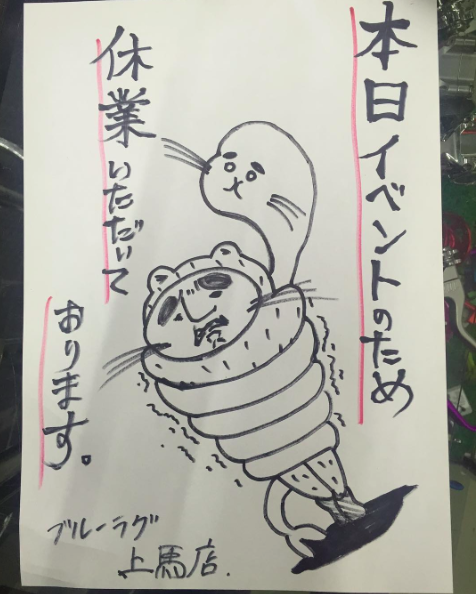 本日イベントのため
休業いただいて
おります。
ブルーラグ
上馬店.